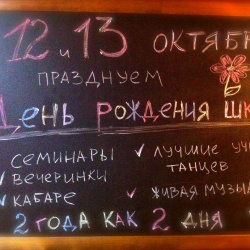 12 и 13 ОКТЯБР
ПРАЗДНУЕМ
ДЕНЬ РОЖДЕНИЯ ШК
СЕМИНАРЫ ✓ ЛУЧШИЕ УЧ
✓ ВЕЧЕРИНКИ ТАНЦЕВ
✓ КАБАРЕ ✓ ЖИВАЯ МУЗЫ
2 ГОДА КАК 2 ДНЯ